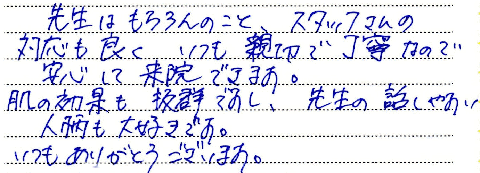 先生はもちろんのこと、スタッフさんの
対応も良く いつも親切で丁寧なので
安心して来院できます。
肌の効果も抜群ですし、先生の話しやすい
人柄も大好きです。
いつもありがとうございます。